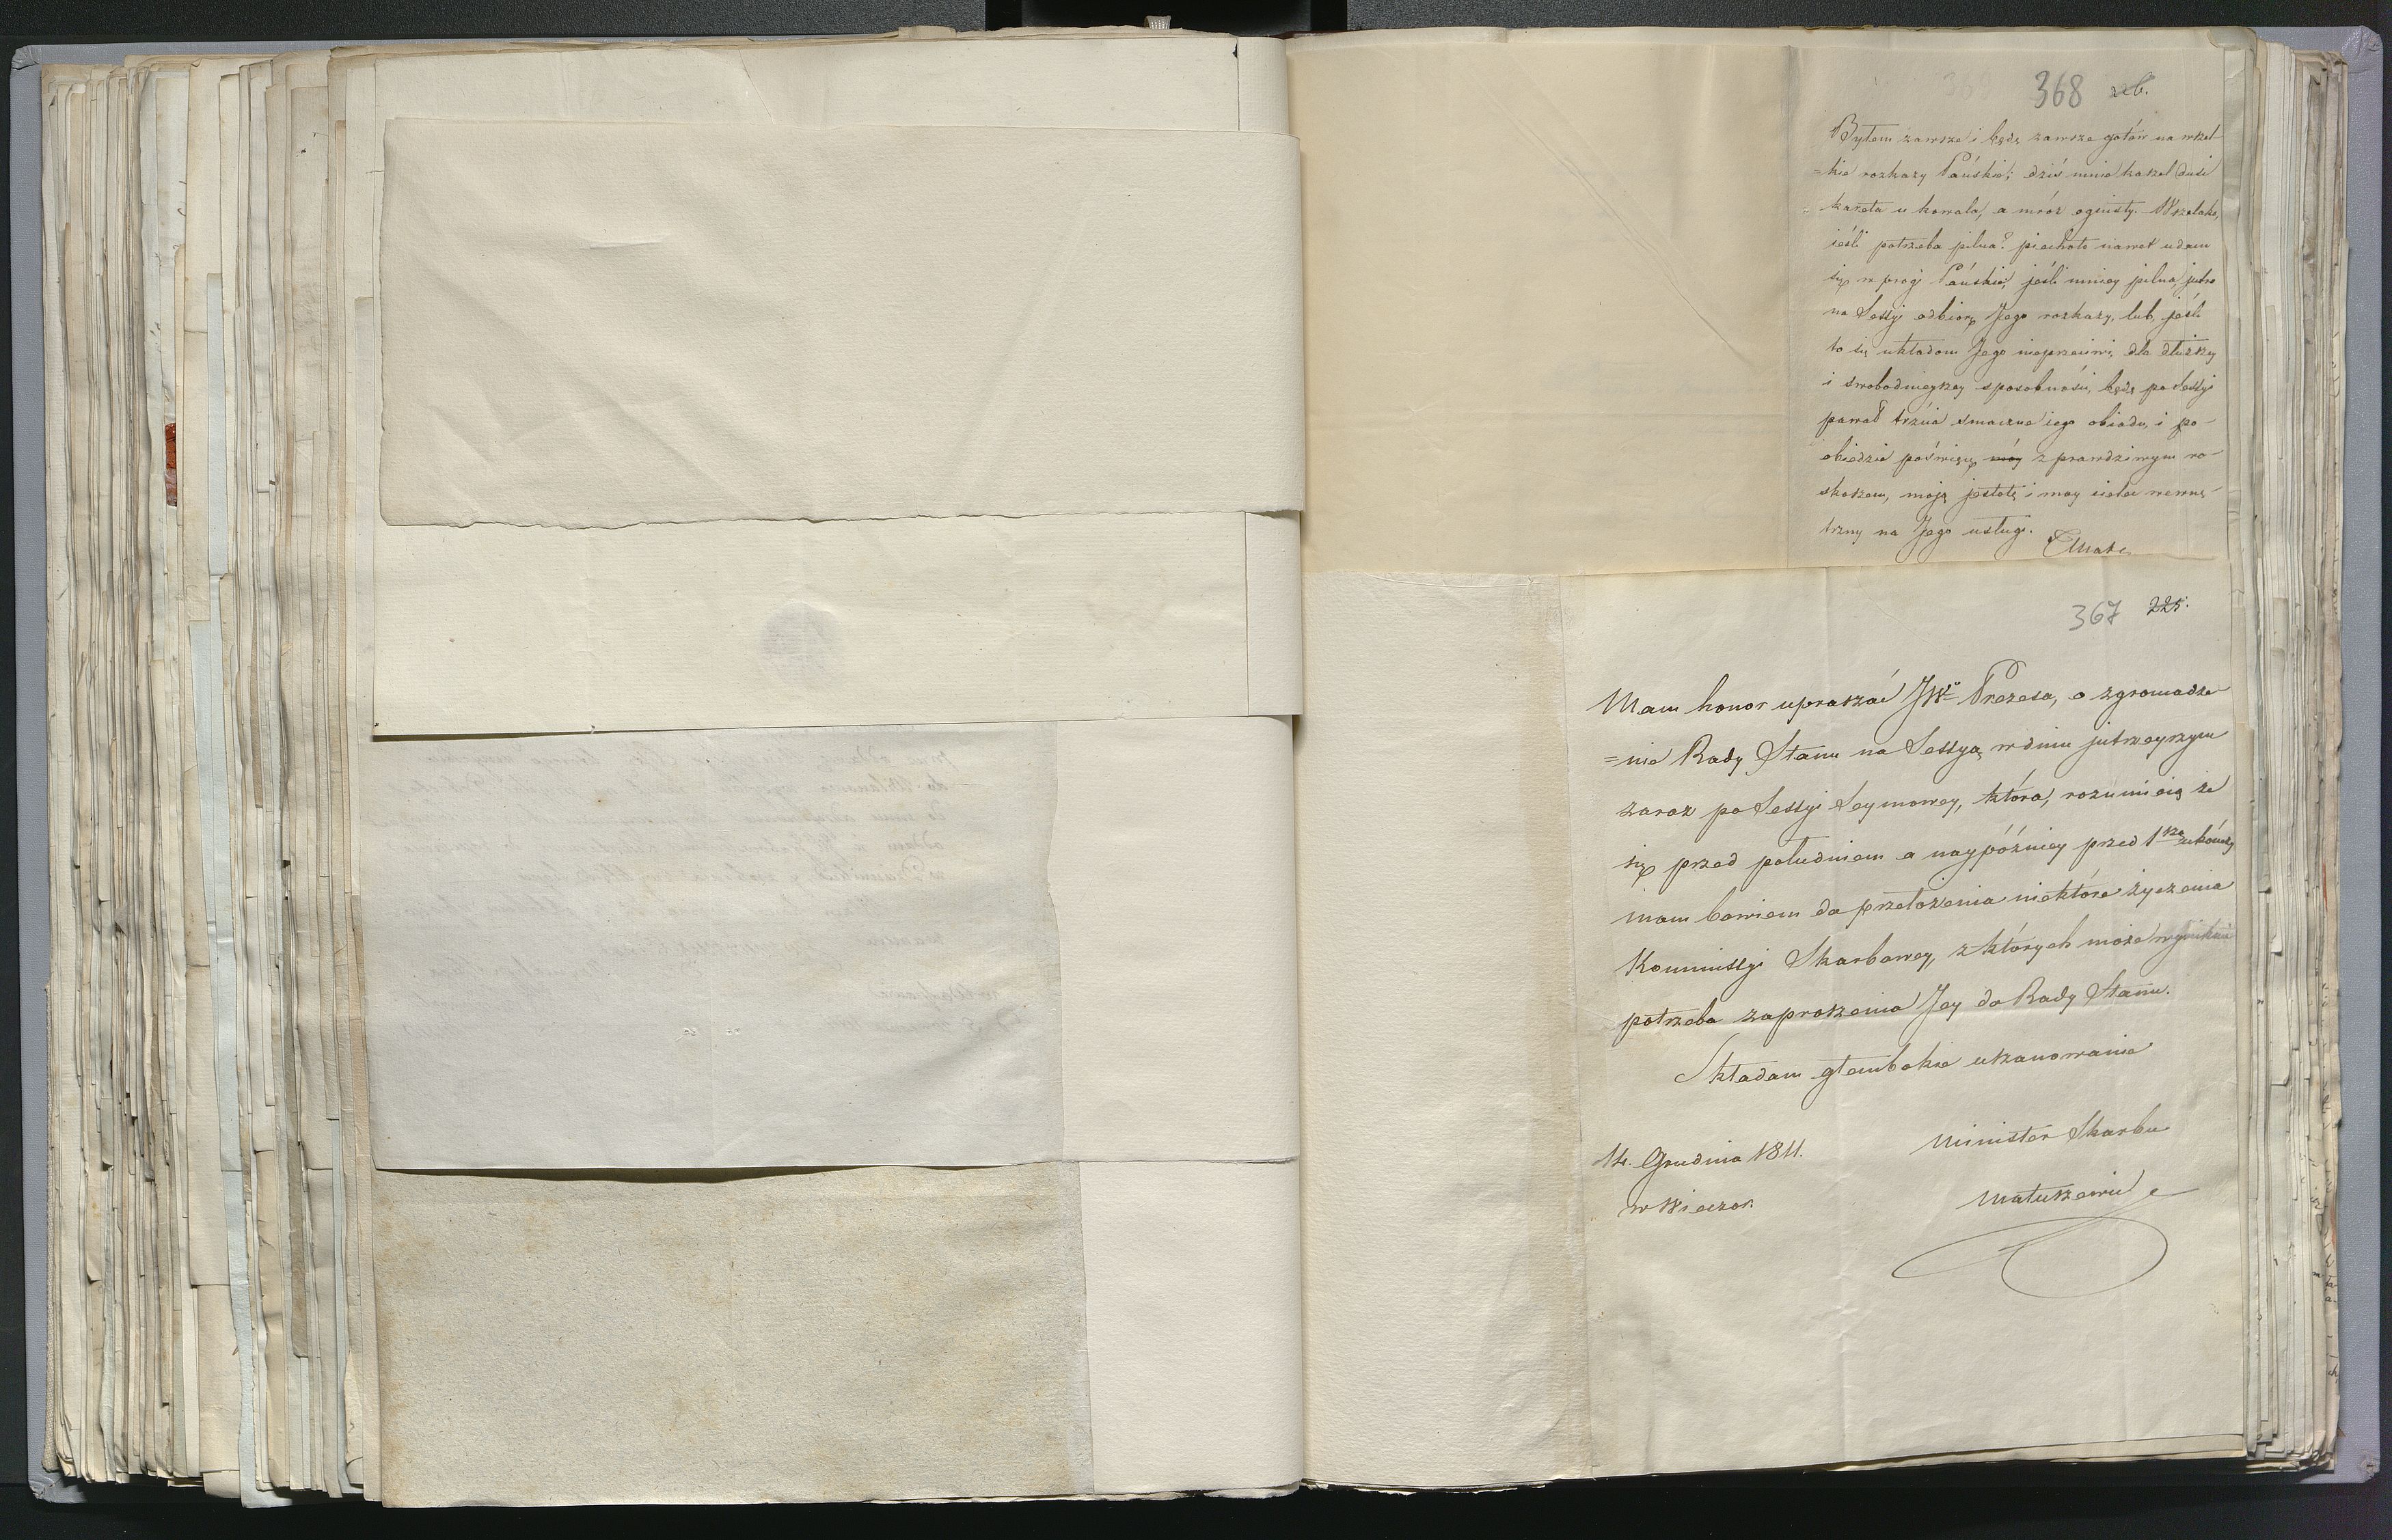 368 226.
Byłem zawsze i będę zawsze gotów na wszel-
=kie rozkazy Pańskie; dziś mnie kaszel dusi
kareta u kowala, a mróz ognisty. Wszelako,
ieśli potrzeba pilna? piechoto nawet udam
się w progi Pańskie, jeśli mniey pilna, jutro
na Sessyi odbiorę Jego rozkazy, lub, jeśli
to się układom Jego nieprzeciwi, dla dłuższey
i swobodnieyszey sposobności, będę po Sessyi
pawał trzcią smaczne iego obiadu, i po-
obiedzie poświęcę móy z prawdziwym ro-
skoszem, moją jestotę i moy ciołek wewnę-
trzny na Jego usługi.
TMatu
367 225.
Mam honor upraszać JWo Prezesa, o zgromadze
=nie Rady Stanu na Sessyą, w dniu jutrzeyszym
zaraz po Sessyi Seymowey, która, rozumieią że
się przed południem a naypóźniey przed 1szą ukończy
mam bowiem do przełożenia niektóre życzenia
Kommissyi Skarbowey, z których może wyniknąć
potrzeba zaproszenia Jey do Rady Stanu.
Składam głembokie uszanowanie
Minister Skarbu
14. Grudnia 1811.
w Wieczor.
Matuszewic